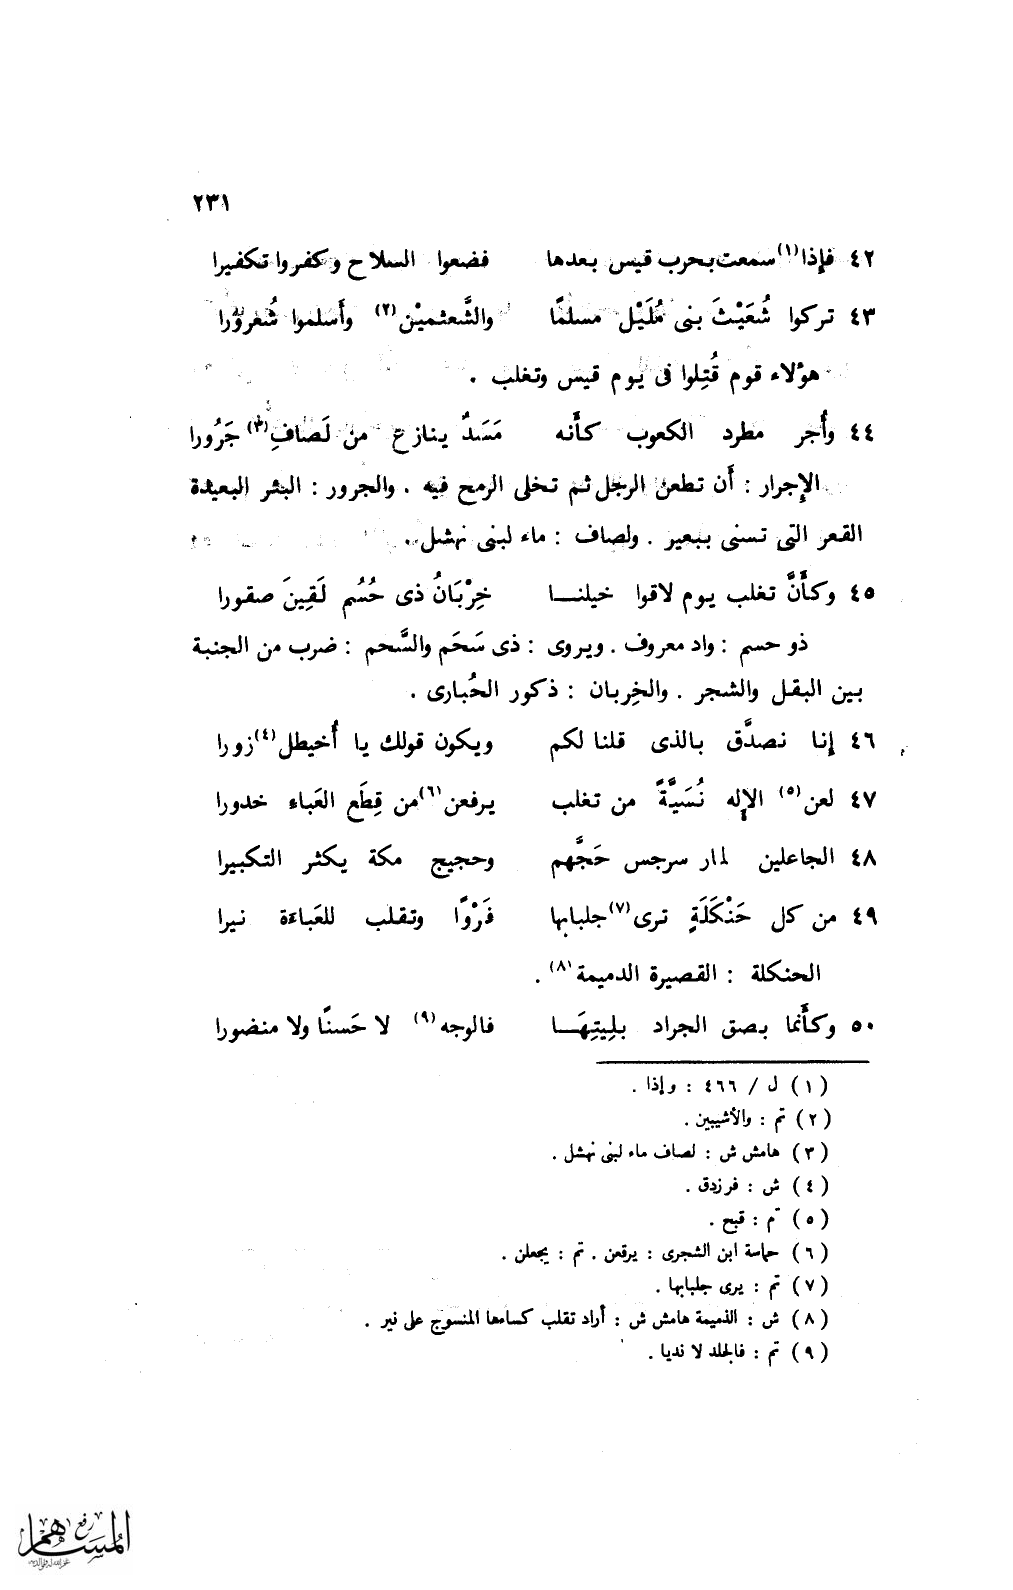 ٢٣١
٤٢ فإذا(١) سمعت بحرب قيس بعدها فضعوا السلاح وكفروا تكفيرا
٤٣ تركوا شُعَيْثَ بنى مُلَيْل مسلمًا والشَّعثميْن(٢) وأسلموا شُعْرورا
هؤلاء قوم قُتِلوا فى يوم قيس وتغلب .
٤٤ وأُجر مطرد الكعوب كأَنه مَسَدٌ ينازع من لَصافِ(٣) جَرُورا
الإِجرار : أَن تطعن الرجل ثم تخلى الرمح فيه . والجرور : البئر البعيدة
القعر التى تسنى ببعير . ولصاف : ماء لبنى نهشل .
٤٥ وكأَنَّ تغلب يوم لاقوا خيلنا خِرْبَانُ ذى حُسُم لَقِينَ صقورا
ذو حسم : واد معروف . ويروى : ذى سَحَم والسَّحم : ضرب من الجنبة
بين البقل والشجر . والخِربان : ذكور الحُبارى .
٤٦ إنا نصدَّق بالذى قلنا لكم ويكون قولك يا أُخيطل(٤) زورا
٤٧ لعن(٥) الإله نُسَيَّةً من تغلب يرفعن(٦) من قِطَع العَباء خدورا
٤٨ الجاعلين لمار سرجس حَجَّهم وحجيج مكة يكثر التكبيرا
٤٩ من كل حَنْكَلَةٍ ترى(٧) جلبابها فَرْوًا وتقلب للعَباءَة نيرا
الحنكلة : القصيرة الدميمة(٨) .
٥٠ وكأَنما بصق الجراد بلِيتِهَا فالوجه(٩) لا حَسنًا ولا منضورا
(١) ل / ٤٦٦ : وإذا .
(٢) تم : والأشيبين .
(٣) هامش ش : لصاف ماء لبنى نهشل .
(٤) ش : فرزدق .
(٥) م : قبح .
(٦) حماسة ابن الشجرى : يرقعن . تم : يجعلن .
(٧) تم : يرى جلبابها .
(٨) ش : الذميمة هامش ش : أراد تقلب كساءها المنسوج على نير .
(٩) تم : فالجلد لا نديا .